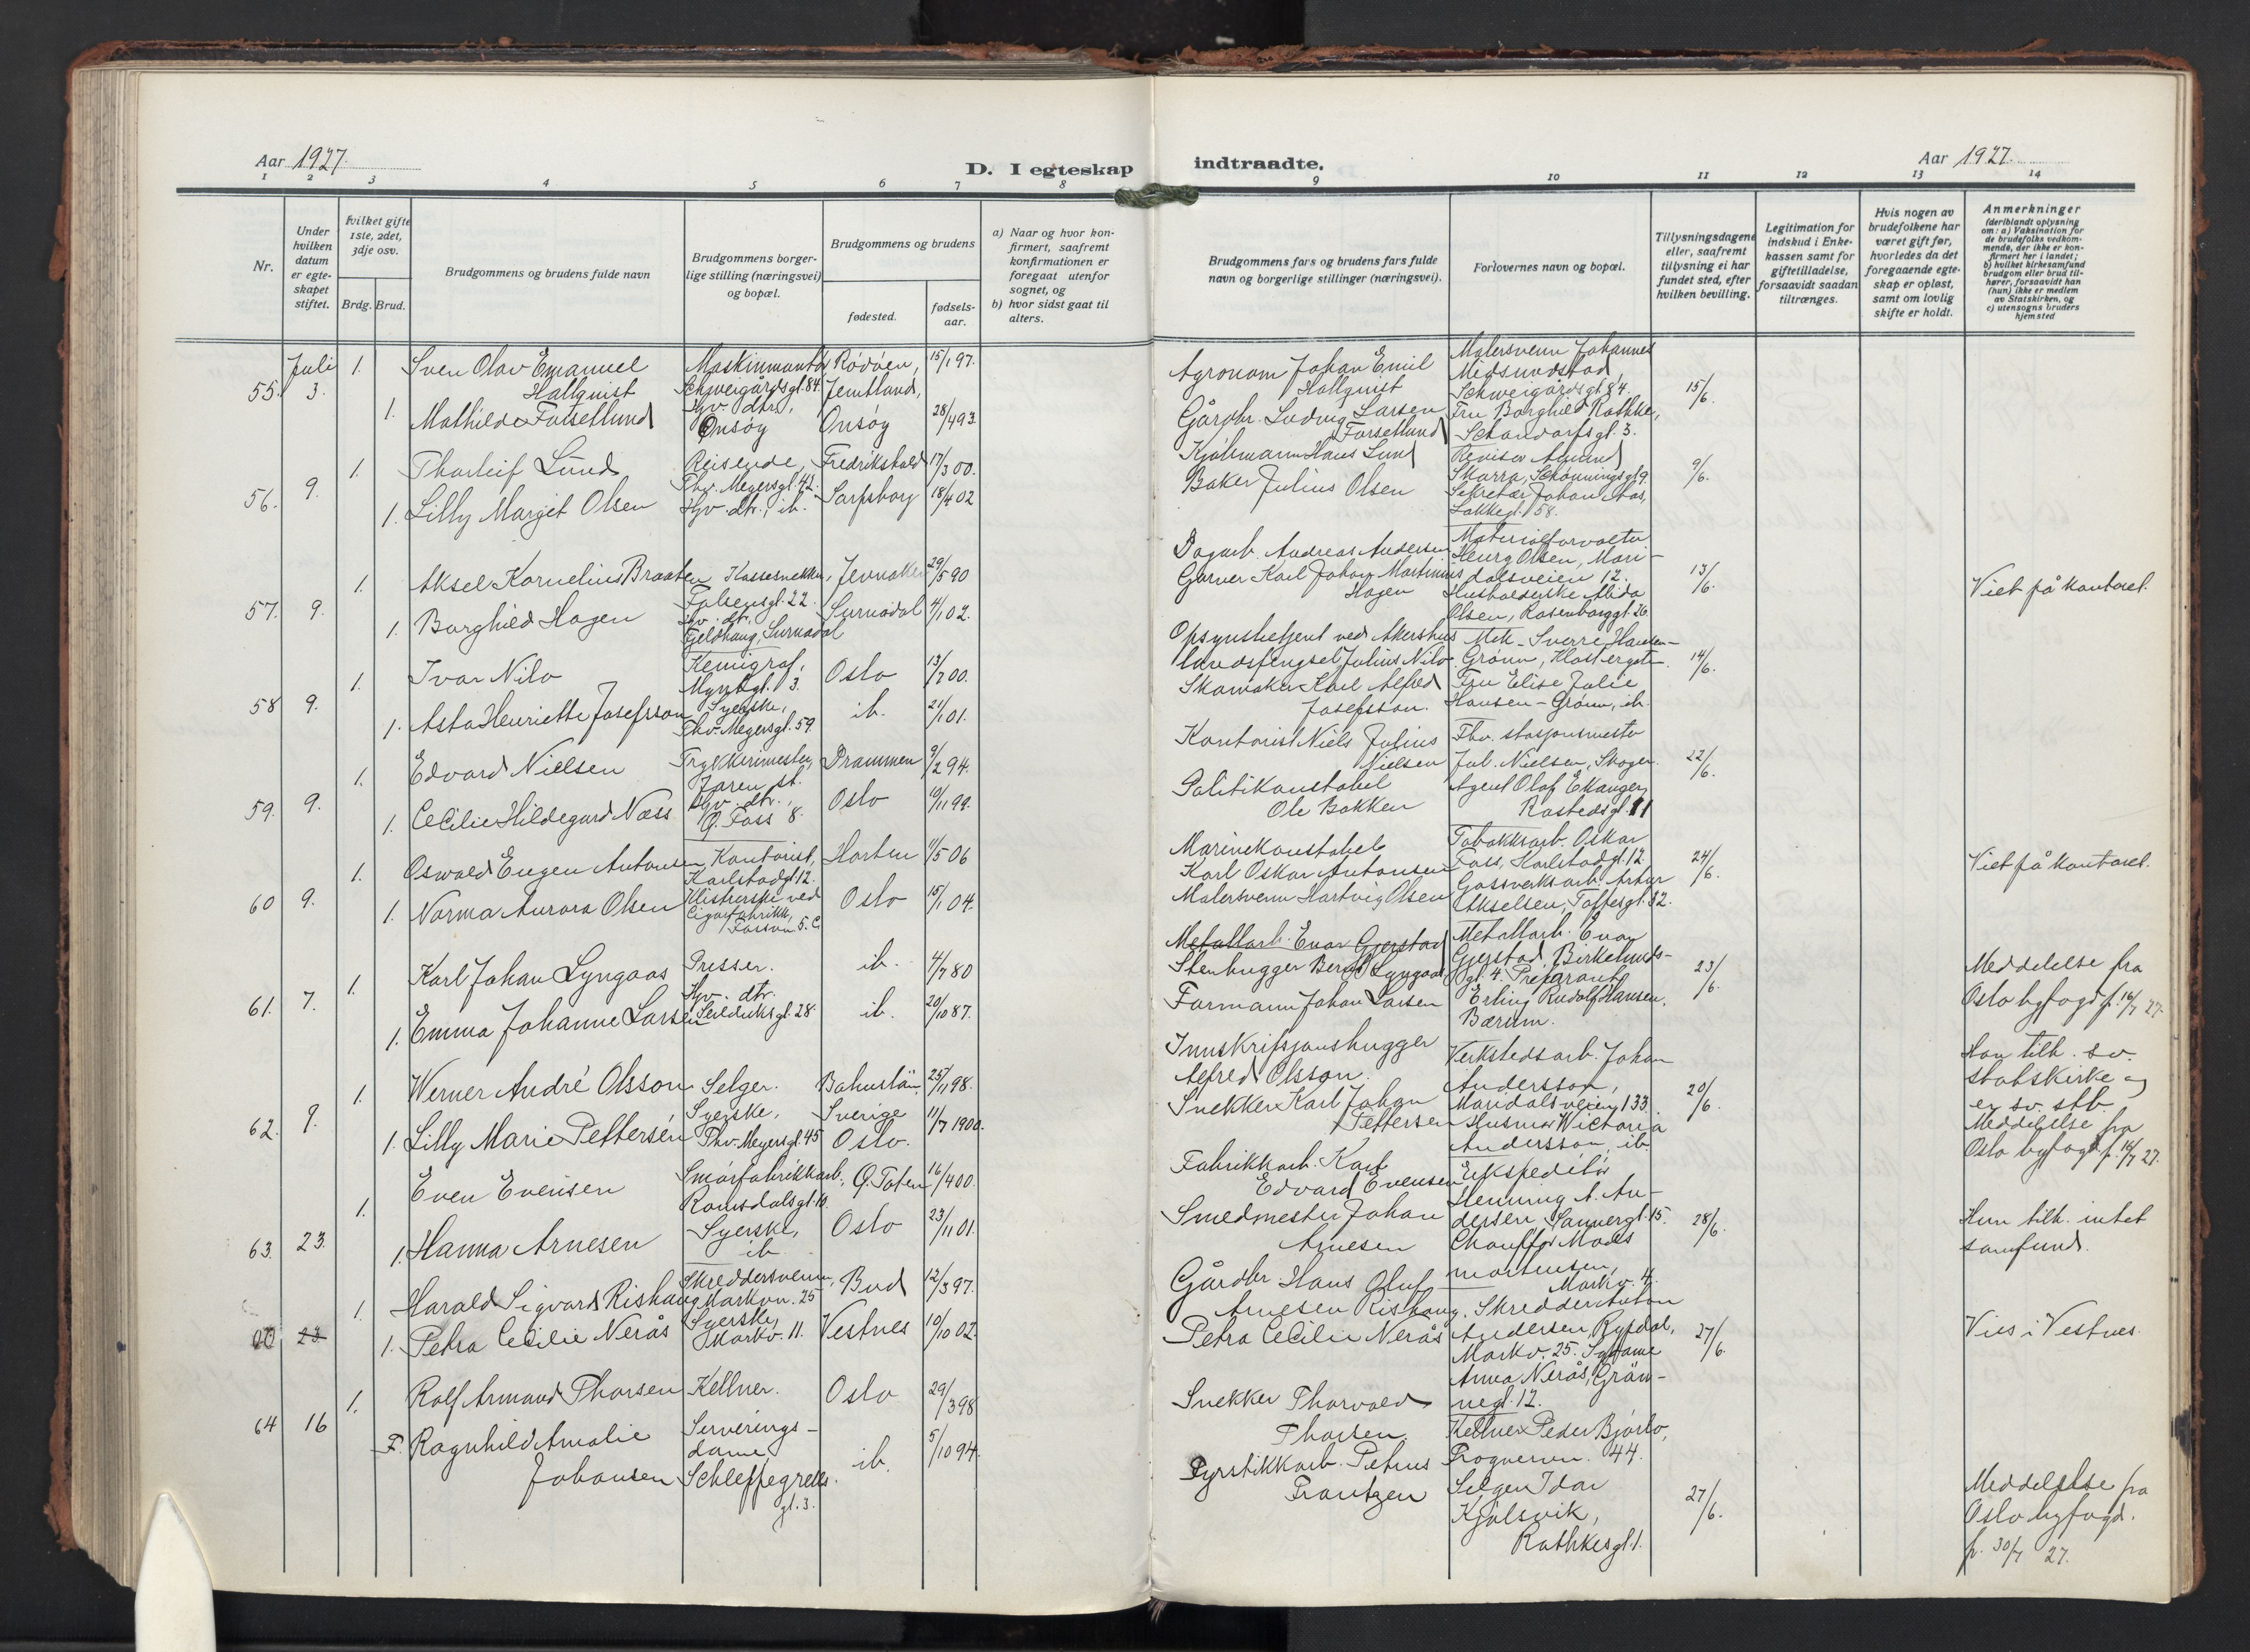 Aar 1927.
D. I egteskap
1 2 3 4 5 6 7 8
Nr.
Under hvilken datum er egteskapet stiftet.
Hvilket gifte 1ste, 2det, 3dje osv.
Brdg. Brud.
Brudgommens og brudens fulde navn
Brudgommens borgerlige stilling (næringsvei) og bopæl.
Brudgommens og brudens
fødested.
fødselsaar.
a) Naar og hvor konfirmert, saafremt konfirmationen er foregaat utenfor sognet, og
b) hvor sidst gaat til alters.
Juli 1. Sven Olav Emanuel Maskinmontør Rödöen, 15/1 97.
55. 3. Hallquist Schweigårdsgt. 84. Jemtland,
1. Mathilde Forsetlund Hgv. dtr., Onsøy Onsøy 28/4 93.
1. Thorleif Lund Reisende, Fredrikshald 17/3 00.
56. 9. Thv. Meyersgt. 42.
1. Lilly Margit Olsen Hgv. dtr., ib. Sarpsborg 18/4 02
1. Aksel Kornelius Braaten Kassesnekker, Jevnaker 29/5 90
57. 9. Falsensgt. 22.
1. Borghild Hagen Hv. dtr., Surnadal 4/1 02.
Fjeldhaug, Surnadal
1. Ivar Nilo Kemigraf, Oslo 13/7 00.
58 9. gt. 3.
1. Asta Henriette Josefsson Syerske, ib. 21/1 01.
Thv. Meyersgt. 59.
1. Edvard Nielsen Trykkerimester, Drammen 9/2 94.
59. 9. Jaren st.
1. Cecilie Hildegard Næss Hgv. dtr., Oslo 10/11 99.
8.
1. Oswald Eugen Antonsen, Kontorist, Horten 11/5 06
60 9. Karlstadgt. 12.
1. Norma Aurora Olsen Klistrerske ved Oslo 15/1 04.
Cigarfabrikk,
Fossvn. 5. C
1. Karl Johan Lyngaas Presser. ib. 4/7 80
61. 7. Hgv. dtr.
1. Emma Johanne Larsen Seilduksgt. 28. ib. 20/10 87.
1. Werner André Olsson Selger. Bohuslän, 25/11 98.
62. 9. Syerske, Sverige
1. Lilly Marie Pettersen Thv. Meyersgt. 45 Oslo. 11/7 1900.
Even Evensen Smørfabrikkarb., Ø. Toten 16/4 00.
1. Romsdalsgt. 10.
63. 23. 1. Hanna Arnesen Syerske, Oslo 23/11 01.
ib
1. Harald Sigvard Rishaug Skreddersvenn, Bud 12/3 97.
Markvn. 25
23. 1. Petra Cecilie Nerås Syerske, Vestnes 10/10 02.
Markv. 11.
1. Rolf Armand Thorsen Kellner. Oslo 29/3 98
64 16 F. Ragnhild Amalie Serverings-
dame ib. 5/10 94.
Johansen Schleppegrells
gt. 3.
indtraadte.
Aar 1927.
9 10 11 12 13 14
Brudgommens fars og brudens fars fulde navn og borgerlige stillinger (næringsvei).
Forlovernes navn og bopæl.
Tillysningsdagene eller, saafremt tillysning ei har fundet sted, efter hvilken bevilling.
Legitimation for indskud i Enkekassen samt for giftetilladelse, forsaavidt saadan tiltrænges.
Hvis nogen av brudefolkene har været gift før, hvorledes da det foregaaende egteskap er opløst, samt om lovlig skifte er holdt.
Anmerkninger
(deriblandt oplysning om: a) Vaksination for de brudefolks vedkommende, der ikke er konfirmert her i landet; b) hvilket kirkesamfund brudgom eller brud tilhører, forsaavidt han (hun) ikke er medlem av Statskirken, og c) utensogns bruders hjemsted
Agronom Johan Emil Malersvenn Johannes
Hallquist Midsundstad,
Schweigårdsgt. 84 15/6.
Gårdbr. Ludvig Larsen Fru Borghild Rathke,
Forsetlund Schandorfsgt. 3.
Kjølmann Hans Lund Revisor Amund
Baker Julius Olsen Skarra, Schønningsgt. 9. 9/6.
Sekretær Johan Aas,
Lakkegt. 58.
Dagarb. Andreas Andersen Materialforvalter
Henry Olsen, Mari-
Garver Karl Johan Martinius dalsveien 12. 13/6. Viet på kontoret.
Hagen Husholderske Alida
Olsen, Rosenborggt. 26.
Opsynsbetjent ved Akershus Mek. Sverre Hansen-
landsfengsel Julius Nilo. Grønn, Klostergaten. 14/6.
Skomaker Karl Alfred Fru Elise Julie
Josefsson. Hansen-Grønn, ib.
Kontorist Niels Julius Fhv. stasjonsmester
Nielsen Jul. Nielsen, Skoger. 22/6.
Politikonstabel Agent Olaf Ekanger,
Ole Bakken Rostedsgt. 11
Marinekonstabel Tobakksarb. Oskar
Karl Oskar Antonsen Foss, Karlstadgt. 12. 24/6. Viet på kontoret.
Malersvenn Hartvig Olsen Gassverksarb. Artur
Akselsen, Toftesgt. 32.
Metallarb. Einar Gjerstad Metallarb. Einar
Stenhugger Bernt Lyngaas Gjerstad, Birkelunds-
gt. 4. Preparant 23/6. Meddelelse fra
Formann Johan Larsen Erling Rudolf Hansen, Oslo byfogd p. 16/7 27.
Bærum.
Innskripsjonshugger Verkstedsarb. Johan Han tilh. sv.
Alfred Olsson. Andersson, statskirke og
Snekker Karl Johan Maridalsveien 133. 20/6. er sv. stb.
Pettersen Husmor Victoria Meddelelse fra
Andersson, ib. Oslo byfogd p. 16/7 27.
Fabrikkarb. Karl Ekspeditør
Edvard Evensen Henning A. An-
Smedmester Johan dersen, Sannergt. 15. 28/6. Hun tilh. intet
Arnesen Chauffør Mads samfund.
Mortensen,
Gårdbr Hans Oluf Markv. 4.
Arnesen Rishaug. Skredder Anton
Petra Cecilie Nerås Andersen Rypdal, 27/6. Vies i Vestnes.
Markv. 25. Sydame
Anna Nerås, Grün-
Snekker Thorvald negt. 12.
Thorsen. Kellner Peder Bjørlo,
Fyrstikkarb. Petrus Frognervn. 44.
Frantzen Selger Idar 27/6. Meddelelse fra
Kjølsvik, Oslo byfogd.
Rathkesgt. 1. p. 30/7 27.